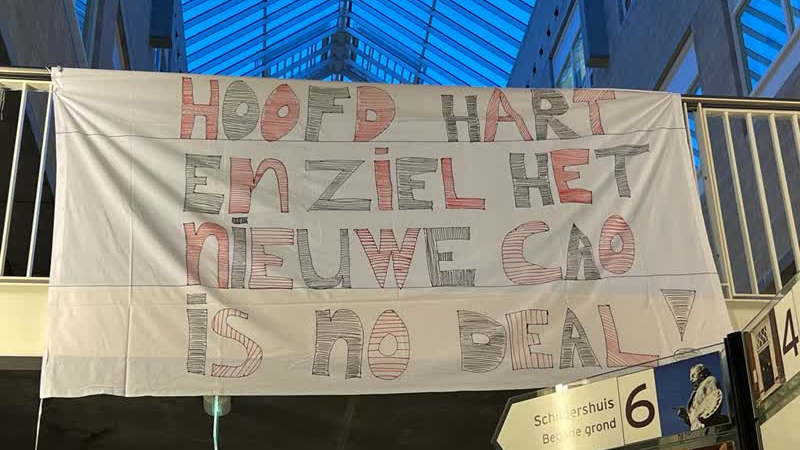 HOOFD HART
EN ZIEL HET
NIEUWE CAO
IS NO DEAL!
Schildershuis
Begane grond
6
4